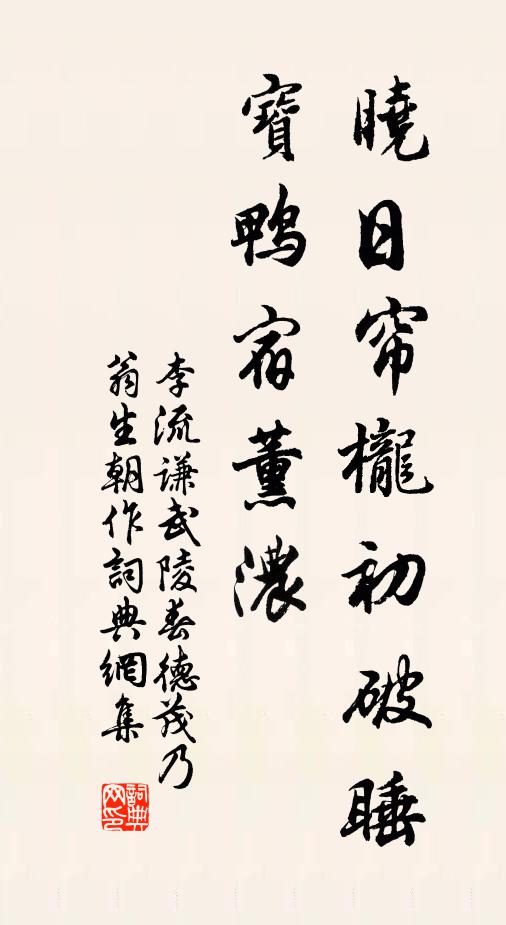 曉日帘櫳初破睡
寶鴨宿薰濃
李流谦武陵春德茂乃
翁生朝作詞典網集
詞典网印